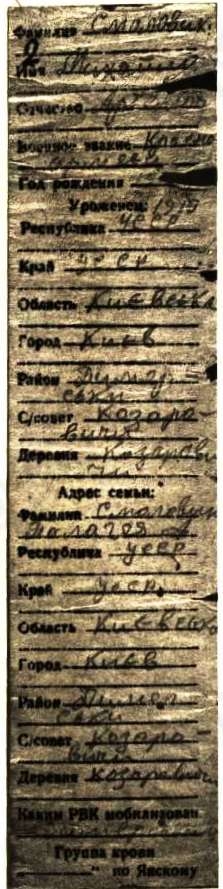 Фамилия Смаловик
Имя Михаил
Отчество
Военное звание Красно
армеец
Год рождения
Уроженец: 1919
Республика УССР
Край УССР
Область Киевская
Город Киев
Район Димер-
ськи
С/совет Козаро-
вичи
Деревня Козарови
чи
Адрес семьи:
Фамилия
Палагея А
Республика УССР
Край УССР
Область
Город Киев
Район Димер
ськи
С/совет Козаро-
вичи
Деревня Козаревич
Каким РВК мобилизован
Группа крови
" по Янскому